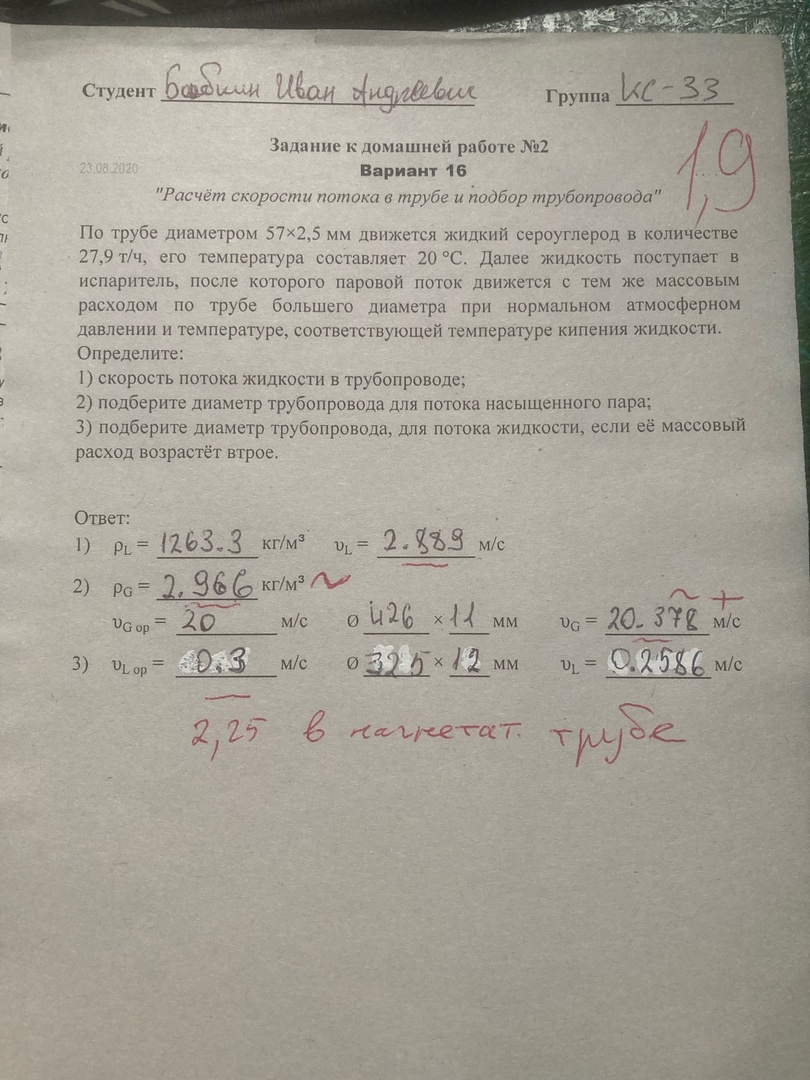 Студент Бабкин Иван Андреевич Группа КС-33
Задание к домашней работе №2
23.08.2020
Вариант 16
1,9
"Расчёт скорости потока в трубе и подбор трубопровода"
По трубе диаметром 57×2,5 мм движется жидкий сероуглерод в количестве
27,9 т/ч, его температура составляет 20 °С. Далее жидкость поступает в
испаритель, после которого паровой поток движется с тем же массовым
расходом по трубе большего диаметра при нормальном атмосферном
давлении и температуре, соответствующей температуре кипения жидкости.
Определите:
1) скорость потока жидкости в трубопроводе;
2) подберите диаметр трубопровода для потока насыщенного пара;
3) подберите диаметр трубопровода, для потока жидкости, если её массовый
расход возрастёт втрое.
Ответ:
1) ρL = 1263.3 кг/м³ υL = 2.889 м/с
2) ρG = 2.966 кг/м³ ~
υG ор = 20 м/с Ø 426 × 11 мм υG = 20.378 м/с ~ +
3) υL ор = 0.3 м/с Ø 325 × 12 мм υL = 0.2586 м/с
2,25 в нагнетат. трубе